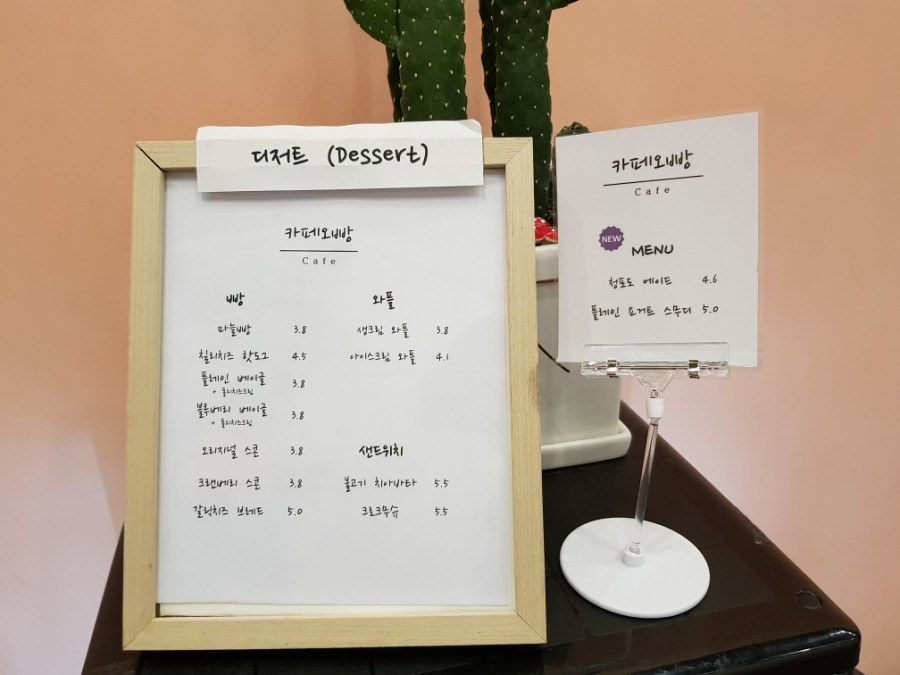 디저트 (Dessert)
카페오빵
Cafe
빵
마늘빵 3.8
칠리치즈 핫도그 4.5
플레인 베이글 3.8
+ 필리치즈크림
블루베리 베이글 3.8
+ 필리치즈크림
오리지널 스콘 3.8
크랜베리 스콘 3.8
갈릭치즈 브레드 5.0
와플
생크림 와플 3.8
아이스크림 와플 4.1
샌드위치
불고기 치아바타 5.5
크로크무슈 5.5
카페오빵
Cafe
NEW
MENU
청포도 에이드 4.6
플레인 요거트 스무디 5.0